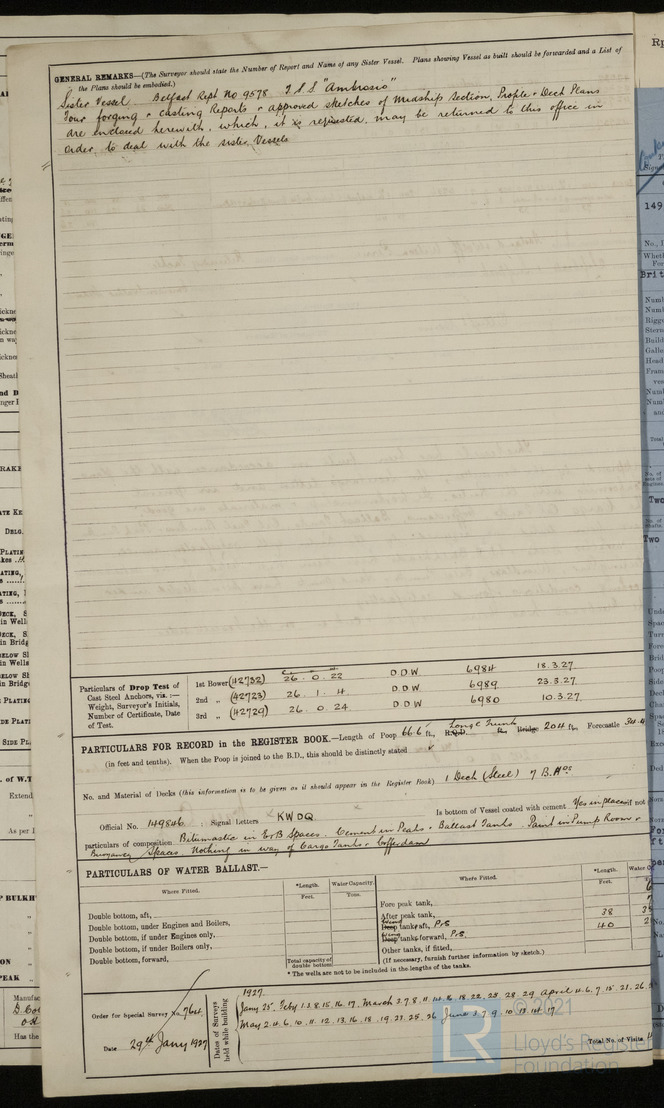 GENERAL REMARKS—(The Surveyor should state the Number of Report and Name of any Sister Vessel. Plans showing Vessel as built should be forwarded and a List of
the Plans should be embodied.)
Sister Vessel. Belfast Rept No 9578. T.S.S. "Ambrosio"
Four forging & casting Reports & approved sketches of Midship Section, Profile & Deck Plans
are enclosed herewith, which, it is requested, may be returned to this office in
order, to deal with the sister Vessels
Particulars of Drop Test of
Cast Steel Anchors, viz.:—
Weight, Surveyor's Initials,
Number of Certificate, Date
of Test.
1st Bower (42732) 26.0.22 DDW 6984 18.3.27
2nd „ (42723) 26.1.4 DDW 6989 23.3.27
3rd „ (42729) 26.0.24 DDW 6980 10.3.27
PARTICULARS FOR RECORD in the REGISTER BOOK.—Length of Poop 66.6 ft., R.Q.D. Long Trunk ft., Bridge 204 ft., Forecastle 34.4
(in feet and tenths). When the Poop is joined to the B.D., this should be distinctly stated
No. and Material of Decks (this information is to be given as it should appear in the Register Book) 1 Deck (Steel) 7 B.Hds
Official No. 149846 Signal Letters KWDQ Is bottom of Vessel coated with cement Yes in place if not
particulars of composition Bitumastic in E&B Spaces. Cement in Peaks & Ballast Tanks. Paint in Pump Rooms &
Buoyancy Spaces. Nothing in way of Cargo Tanks & Cofferdam
PARTICULARS OF WATER BALLAST.—
Where Fitted. *Length. Water Capacity. Where Fitted. *Length. Water
Feet. Tons. Feet.
Double bottom, aft,
Double bottom, under Engines and Boilers,
Double bottom, if under Engines only,
Double bottom, if under Boilers only,
Double bottom, forward,
Total capacity of double bottom
Fore peak tank,
After peak tank,
Deep tank, aft, P&S 38
Deep tank, forward, P&S 40
Other tanks, if fitted,
(If necessary, furnish further information by sketch.)
* The wells are not to be included in the lengths of the tanks.
Order for Special Survey No. 764
Date 29th Jany 1927
Dates of Surveys
held while building
1927
Jany 25. Feby 1.2.8.15.16.17. March 2.7.8.11.14.16.18.22.25.28.29 April 4.6.7.15.21.26.
May 2.4.6.10.11.12.13.16.18.19.23.25.26 June 3.7.9.10.13.14.17
Total No. of Visits
© 2021
LR
Lloyd's Register
Foundation
149
Two
Two